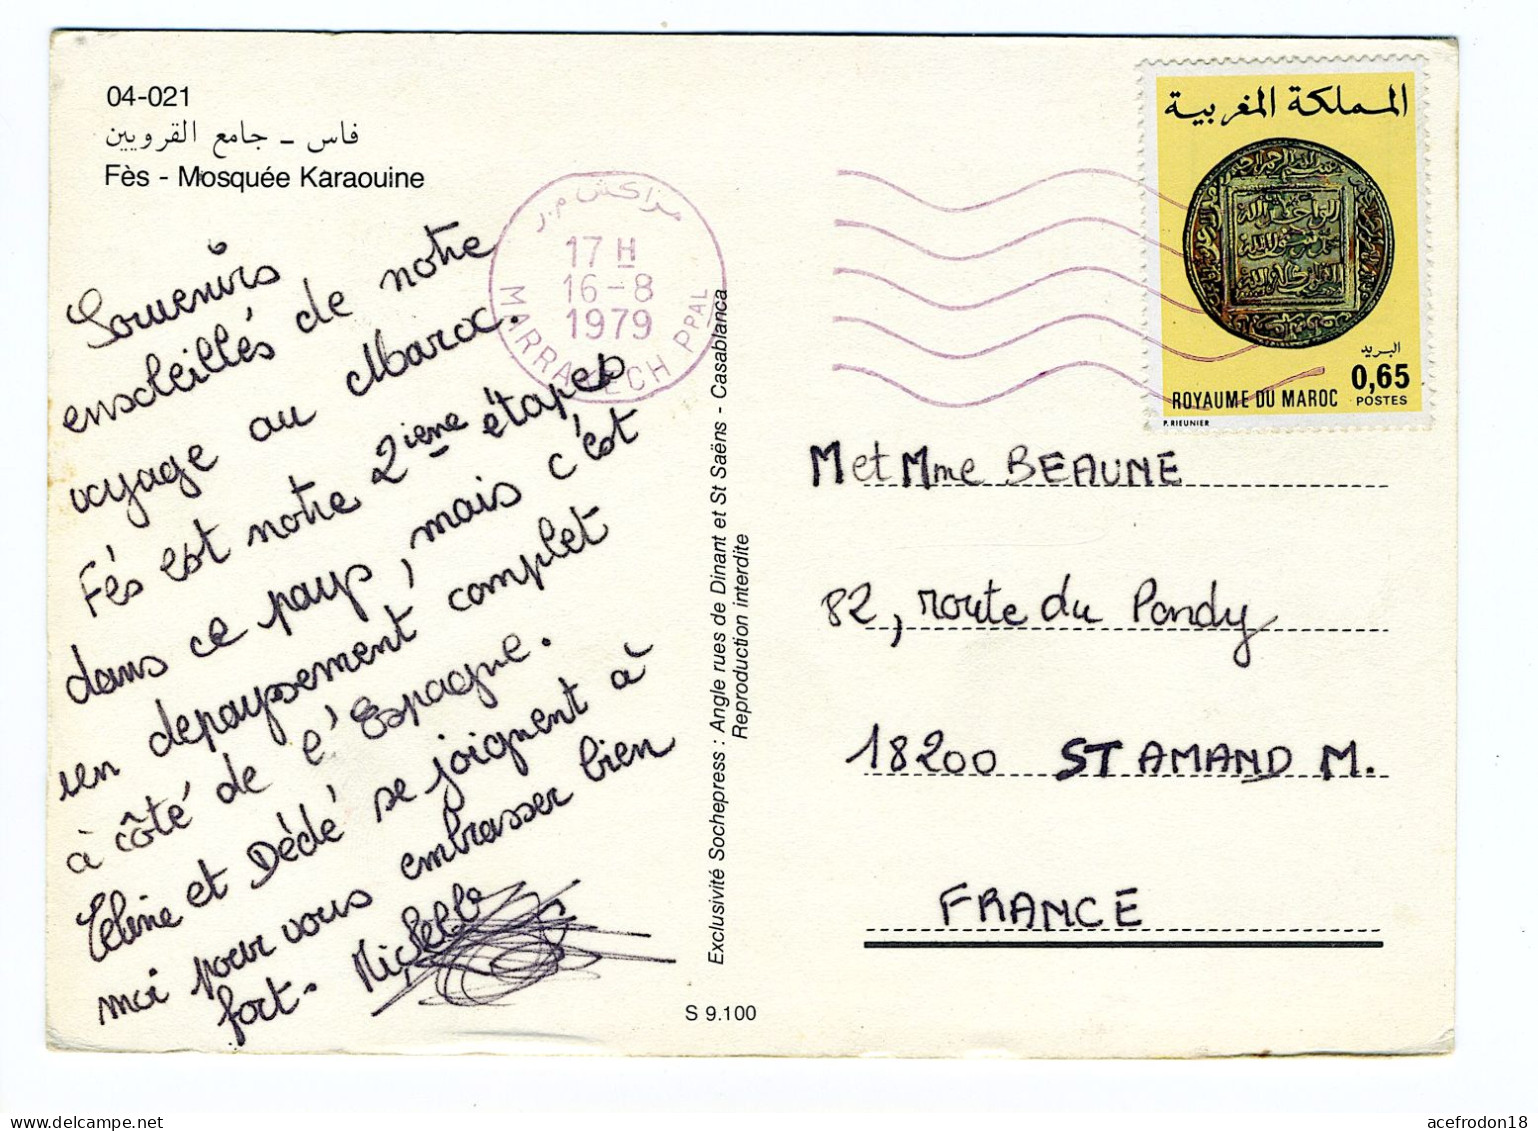 04-021
فاس ـ جامع القرويين
Fès - Mosquée Karaouine
Souvenirs
ensoleillés de notre
voyage au Maroc.
Fés est notre 2ième étapes
dans ce pays, mais c'est
un depaysement complet
à côté de l'Espagne.
et Dédé se joignent à
moi pour vous embrasser bien
fort.
مراكش م.ر
17 H
16-8
1979
MARRAKECH PPAL
Exclusivité Sochepress : Angle rues de Dinant et St Saëns - Casablanca
Reproduction interdite
S 9.100
المملكة المغربية
البريد
0,65
ROYAUME DU MAROC
POSTES
P. RIEUNIER
M et Mme BEAUNE
82, route du Pondy
18200 ST AMAND M.
FRANCE
acefrodon18